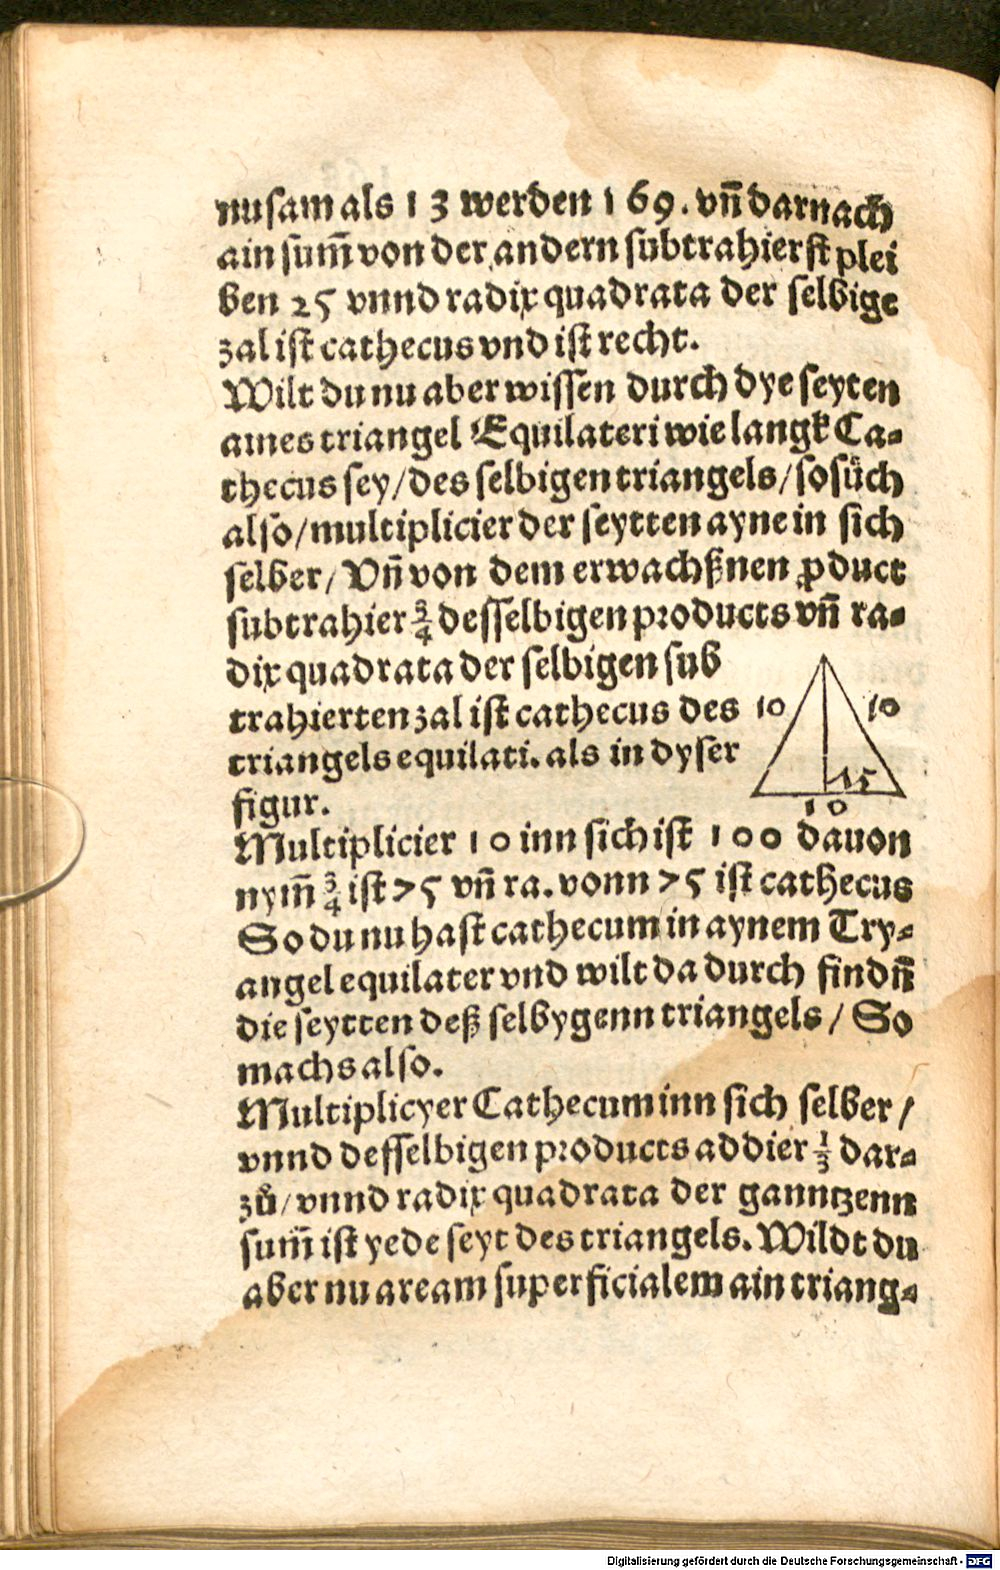 nusam als 13 werden 169. vn̄ darnach
ain sum̄ von der andern subtrahierst plei
ben 25 vnnd radix quadrata der selbige
zal ist cathecus vnd ist recht.
Wilt du nu aber wissen durch dye seyten
aines triangel Equilateri wie langk Ca-
thecus sey/des selbigen triangels/so sůch
also/multiplicier der seytten ayne in sich
selber/Vn̄ von dem erwachßnen ꝓduct
subtrahier 3/4 desselbigen products vn̄ ra-
dix quadrata der selbigen sub
trahierten zal ist cathecus des
triangels equilati. als in dyser
figur.
10 10
15
10
Multiplicier 10 inn sich ist 100 dauon
nym̄ 3/4 ist 75 vn̄ ra. vonn 75 ist cathecus
So du nu hast cathecum in aynem Try-
angel equilater vnd wilt da durch findn̄
die seytten deß selbygenn triangels/ So
machs also.
Multiplicyer Cathecum inn sich selber/
vnnd desselbigen products addier 1/3 dar-
zů/vnnd radix quadrata der ganntzenn
sum̄ ist yede seyt des triangels. Wildt du
aber nu aream superficialem ain triang-
Digitalisierung gefördert durch die Deutsche Forschungsgemeinschaft - DFG